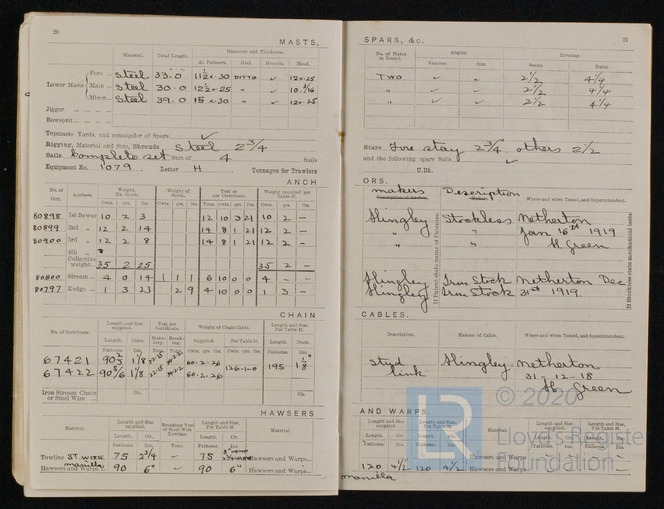 20
MASTS,
Material. Total Length. Diameter and Thickness.
At Partners. Heel. Hounds. Head.
Lower Masts Fore Steel 33.0 11½ × .30 DITTO ✓ 12 × .25
Main Steel 30.0 12½ × .25 " ✓ 10.
Mizen Steel 39.0 15 × .30 " ✓ 12 × .25
Jigger
Bowsprit
Topmasts Yards, and remainder of Spars ✓
Rigging, Material and Size, Shrouds Steel 2¾
Sails Complete set Suit of 4 Sails
Equipment No. 1079. Letter H Tonnages for Trawlers
ANCH
No. of Cert. Anchors. Weight, Ex. Stock. Weight of Stock. Test as per Certificate. Weight required per Table H.
Cwts. qrs. lbs. Cwts. qrs. lbs. Tons cwts. qrs. lbs. Cwts. qrs. lbs.
80898 1st Bower 10 2 3 12 10 3 21 10 2 –
80899 2nd " 12 2 14 14 8 1 21 12 2 –
80900 3rd " 12 2 8 14 8 1 21 12 2 –
4th "
Collective weight 35 2 25 35 2 –
80800 Stream 4 0 14 1 1 1 6 10 0 0 4 – –
80797 Kedge 1 3 23 2 9 4 10 0 0 1 3 –
CHAIN
No. of Certificate. Length and Size supplied. Test per Certificate. Weight of Chain Cable. Length and Size Per Table H.
Supplied. Per Table H.
67421 1⅛ 60.2.26
126.1.0 195 1⅛"
67422 90 5/6 1⅛ 60.2.26
Iron Stream Chain or Steel Wire
HAWSERS
Material. Length and Size supplied. Breaking Test of Steel Wire Towlines. Length and Size Per Table H. Material.
Length. Cir. Length. Cir.
Fathoms. Ins. Tons. Fathoms. Ins.
Towline ST. WIRE 75 2¾ ✓ 75 Hawsers and Warps
Hawsers and Warps manilla 90 6" ✓ 90 6" Hawsers and Warps
21
SPARS, &c.
No. of Plates in Round. Angles. Riveting.
Number. Size. Seams. Butts.
TWO ✓ " 2½ 4¼
" ✓ " 2½ 4¼
" ✓ ✓ 2½ 4¼
Stays Fore stay 2¾" others 2½
and the following spare Sails ✓
U.Dk.
ORS.
makers Description
Where and when Tested, and Superintendent.
If Patent state name of Patentee.
If Stockless state mechanical tests.
Hingley Stockless Netherton
" " Jan 16th 1919
" " H. Green
Hingley Iron Stock Netherton Dec
Hingley Iron Stock 31st 1919.
CABLES.
Description. Makers of Cable. Where and when Tested, and Superintendent.
stud link Hingley Netherton
31-12-18
H. Green
AND WARPS.
Length and Size supplied. Length and Size Per Table H. Material. Length and Size supplied. Length and Size Per Table H.
Length. Cir. Length. Cir. Length. Cir. Length. Cir.
Hawsers and Warps
120 4½" 120 4½ Hawsers and Warps
manilla
© 2020
LR
Lloyd's Register
Foundation